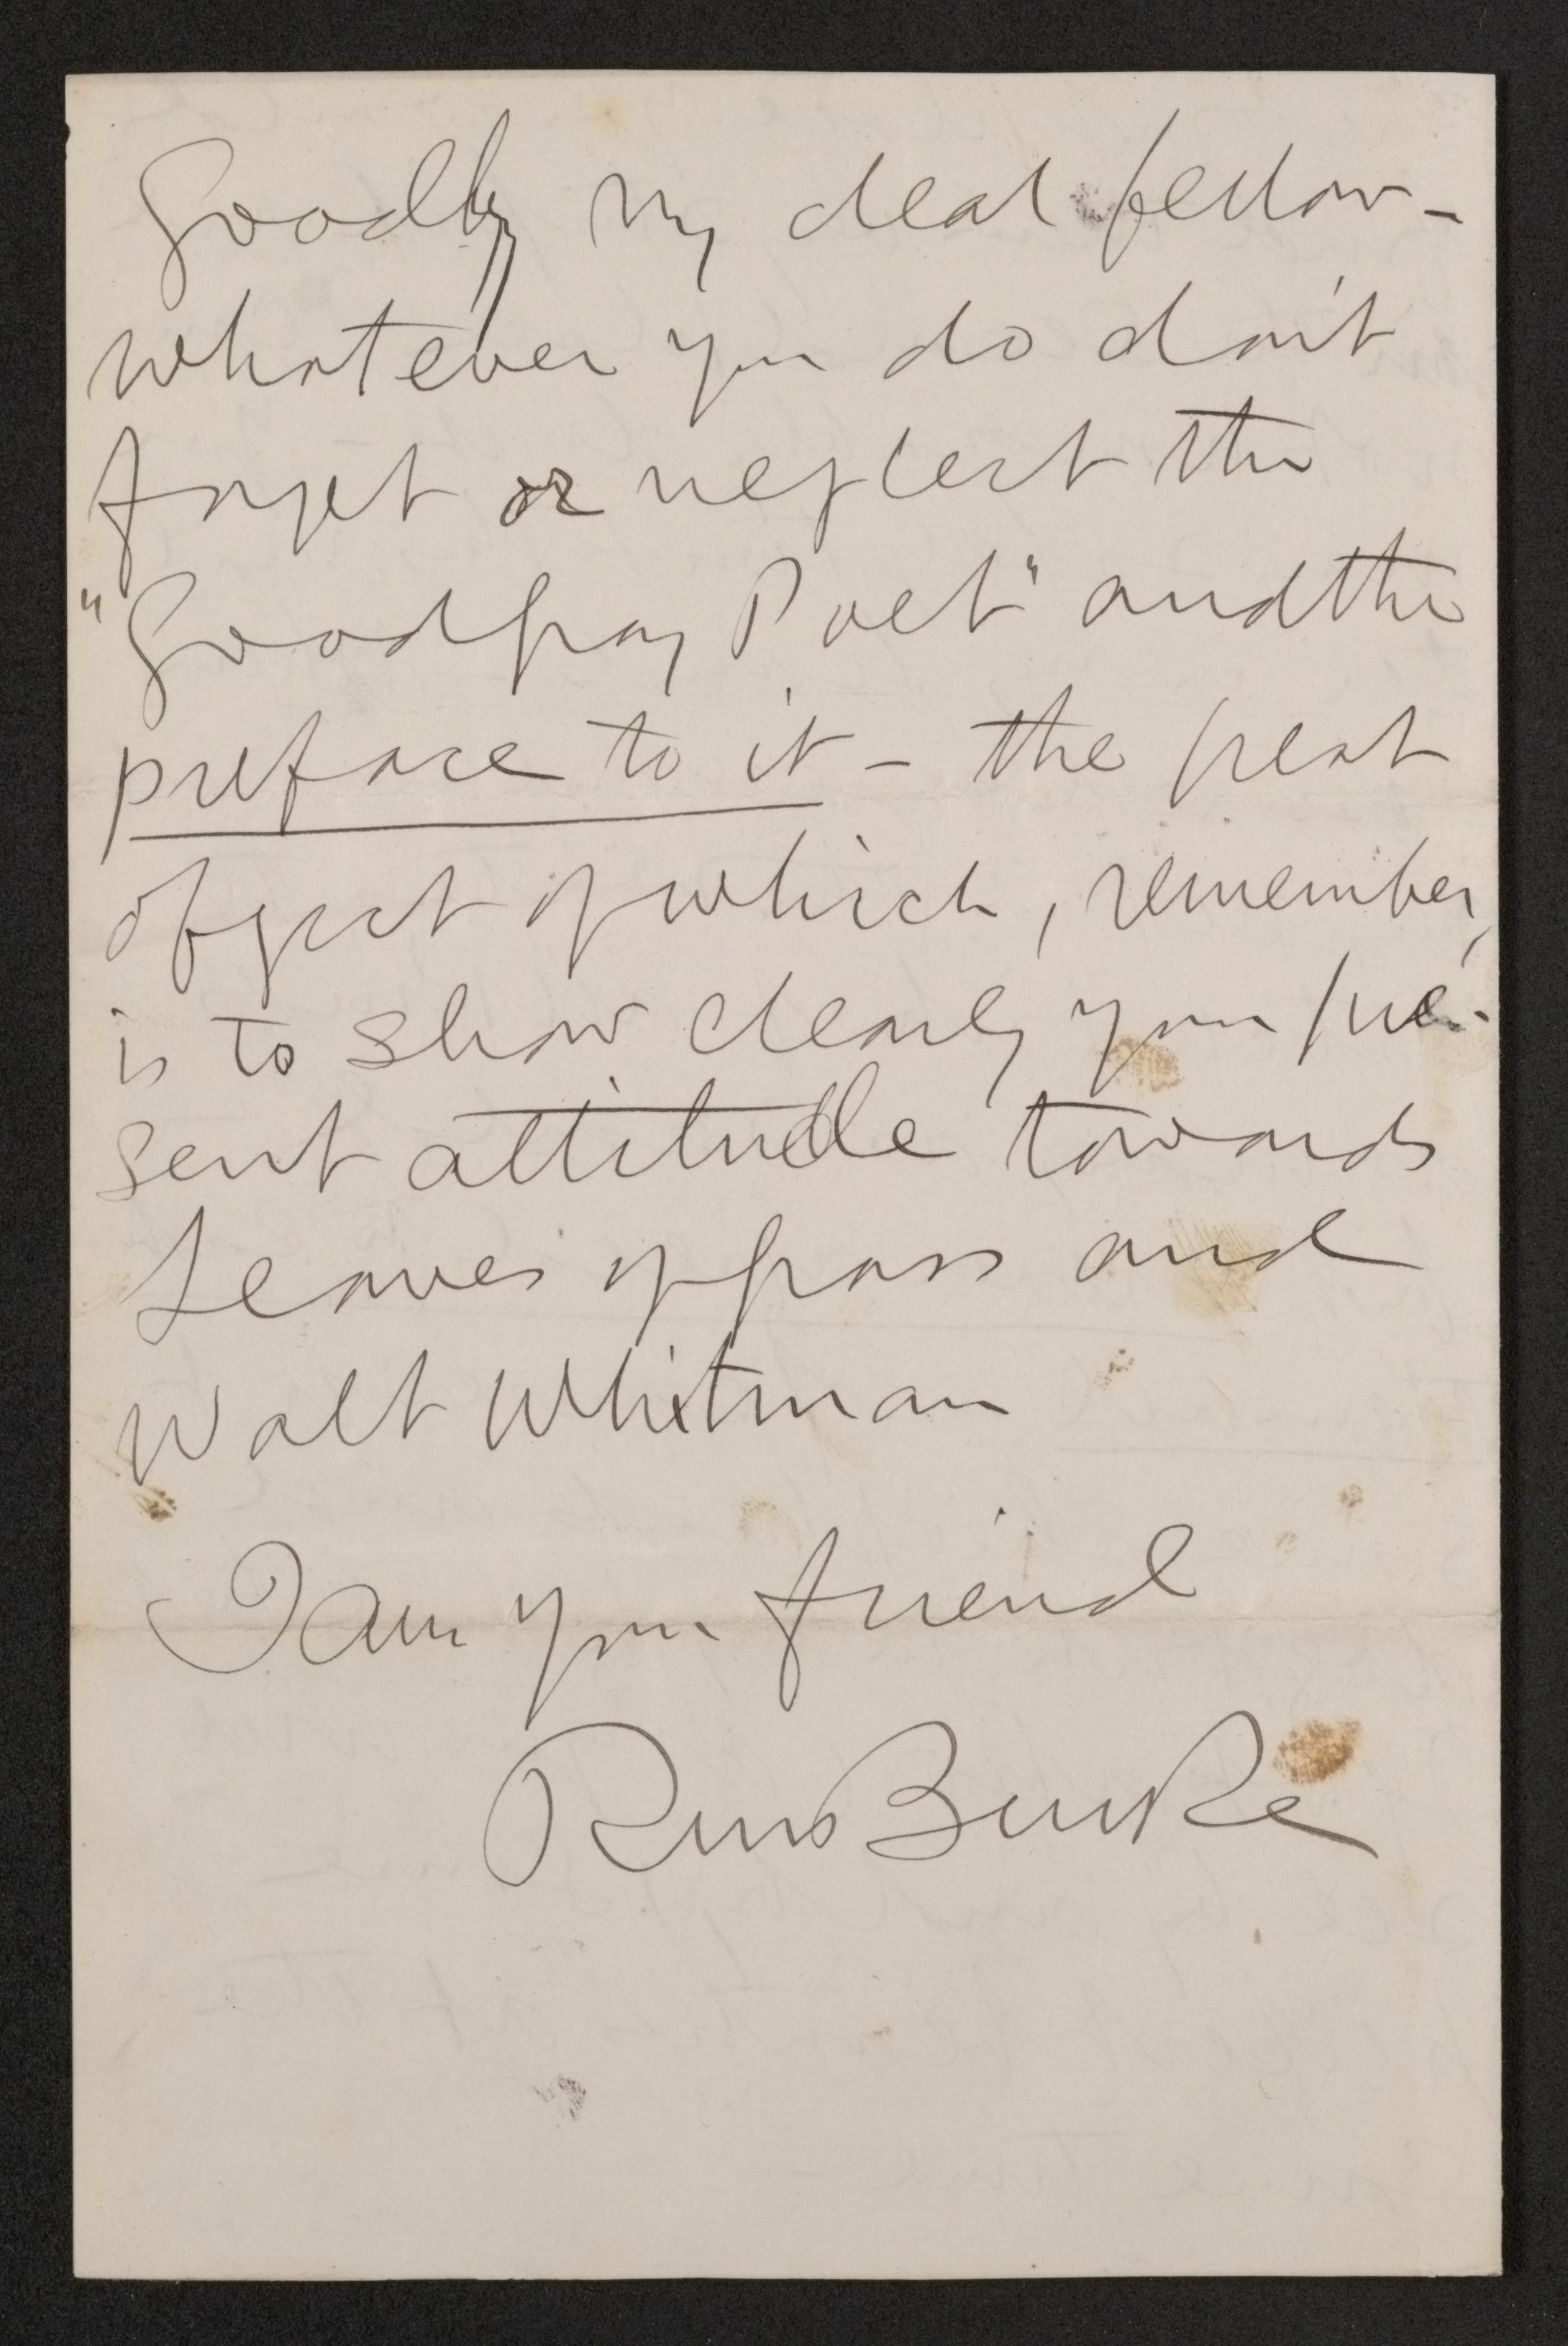 Goodby my dear fellow -
whatever you do don't
forget or neglect the
"Good Gray Poet" and the
preface to it - the great
object of which, remember,
is to show clearly your pre-
sent attitude towards
Leaves of Grass and
Walt Whitman
I am your friend
RM Bucke